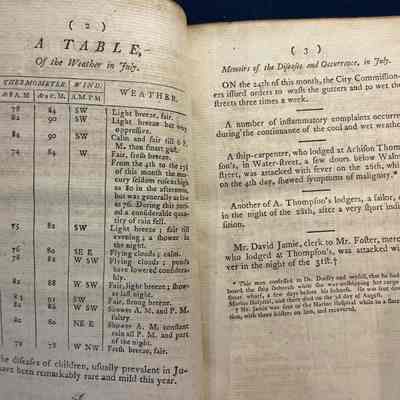 ( 2 )
A TABLE,
Of the Weather in July.
THERMOMETER. WIND.
At 8 A.M At 2 P.M. A.M. P.M WEATHER.
78 84 SW Light breeze, fair.
82 90 SW Light breeze but very
oppressive.
84 90 SW Calm and fair till 6 P.
M. then smart gust.
74 84 W Fair, fresh breeze.
From the 4th to the 25th
of this month the mer-
cury seldom rose as high
as 80 in the afternoon,
but was generally as low
as 76. During this peri-
od a considerable quan-
tity of rain fell.
75 82 SW Light breeze; fair till
evening; a shower in
the night.
76 80 SE E Flying clouds; calm.
78 82 W SW Flying clouds; ponds
have lowered consider-
bly.
82 88 W SW Fair, light breeze; show-
er last night.
83 91 SW Fair, strong breeze.
82 86 W SW Shower A. M. and P. M.
sultry.
80 80 NE E Shower A. M. constant
rain all P. M. and part
of the night.
72 78 W NW Fresh breeze, fair.
The diseases of children, usually prevalent in Ju-
have been remarkably rare and mild this year.
( 3 )
Memoirs of the Diseases and Occurrence, in July.
ON the 24th of this month, the City Commission-
ers issued orders to wash the gutters and to wet the
streets three times a week.
A number of inflammatory complaints occurred
during the continuance of the cool and wet weather.
A ship-carpenter, who lodged at Achison Thomp-
son's, in Water-street, a few doors below Walnut
street, was attacked with fever on the 26th, which
on the 4th day, shewed symptoms of malignity.*
Another of A. Thompson's lodgers, a sailor,
in the night of the 28th, after a very short indi-
sition.
Mr. David Jamie, clerk to Mr. Foster, merc-
who lodged at Thompson's, was attacked with
ver in the night of the 31st.†
* This man confessed to Dr. Duffy and myself, that he had
board the ship Deborah while she was unshipping her cargo
street wharf, a few days before his sickness. He was sent to
Marine Hospital, and there died on the 3d day of August.
† Mr. Jamie was sent to the Marine Hospital while in a
tion, with three blisters on him, and recovered.